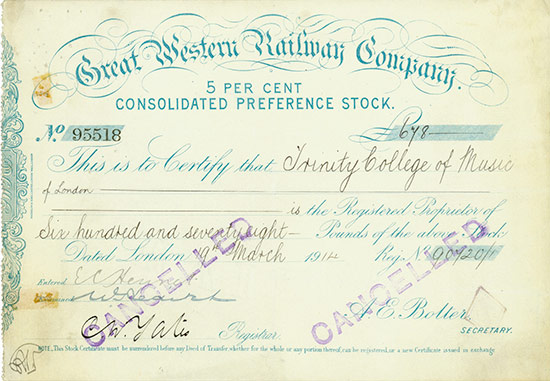 Great Western Railway Company.
5 PER CENT
CONSOLIDATED PREFERENCE STOCK.
No 95518 £678
This is to Certify that Trinity College of Music
of London
is the Registered Proprietor of
Six hundred and seventy eight Pounds of the above Stock
Dated London 19th March 1914 Reg. No
CANCELLED
CANCELLED
Entered
A.E. Bolter
SECRETARY.
C.W. Yates Registrar.
NOTE, This Stock Certificate must be surrendered before any Deed of Transfer, whether for the whole or any portion thereof, can be registered, or a new Certificate issued in exchange.